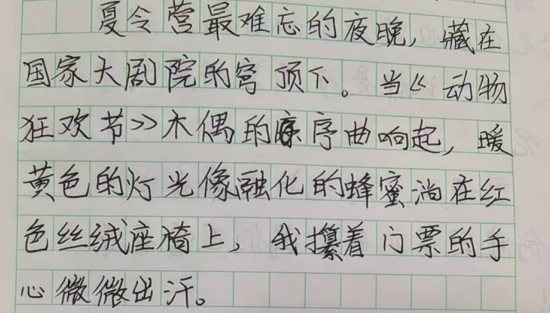 夏令营最难忘的夜晚，藏在
国家大剧院的穹顶下。当《动物
狂欢节》木偶的序曲响起，暖
黄色的灯光像融化的蜂蜜淌在红
色丝绒座椅上，我攥着门票的手
心微微出汗。